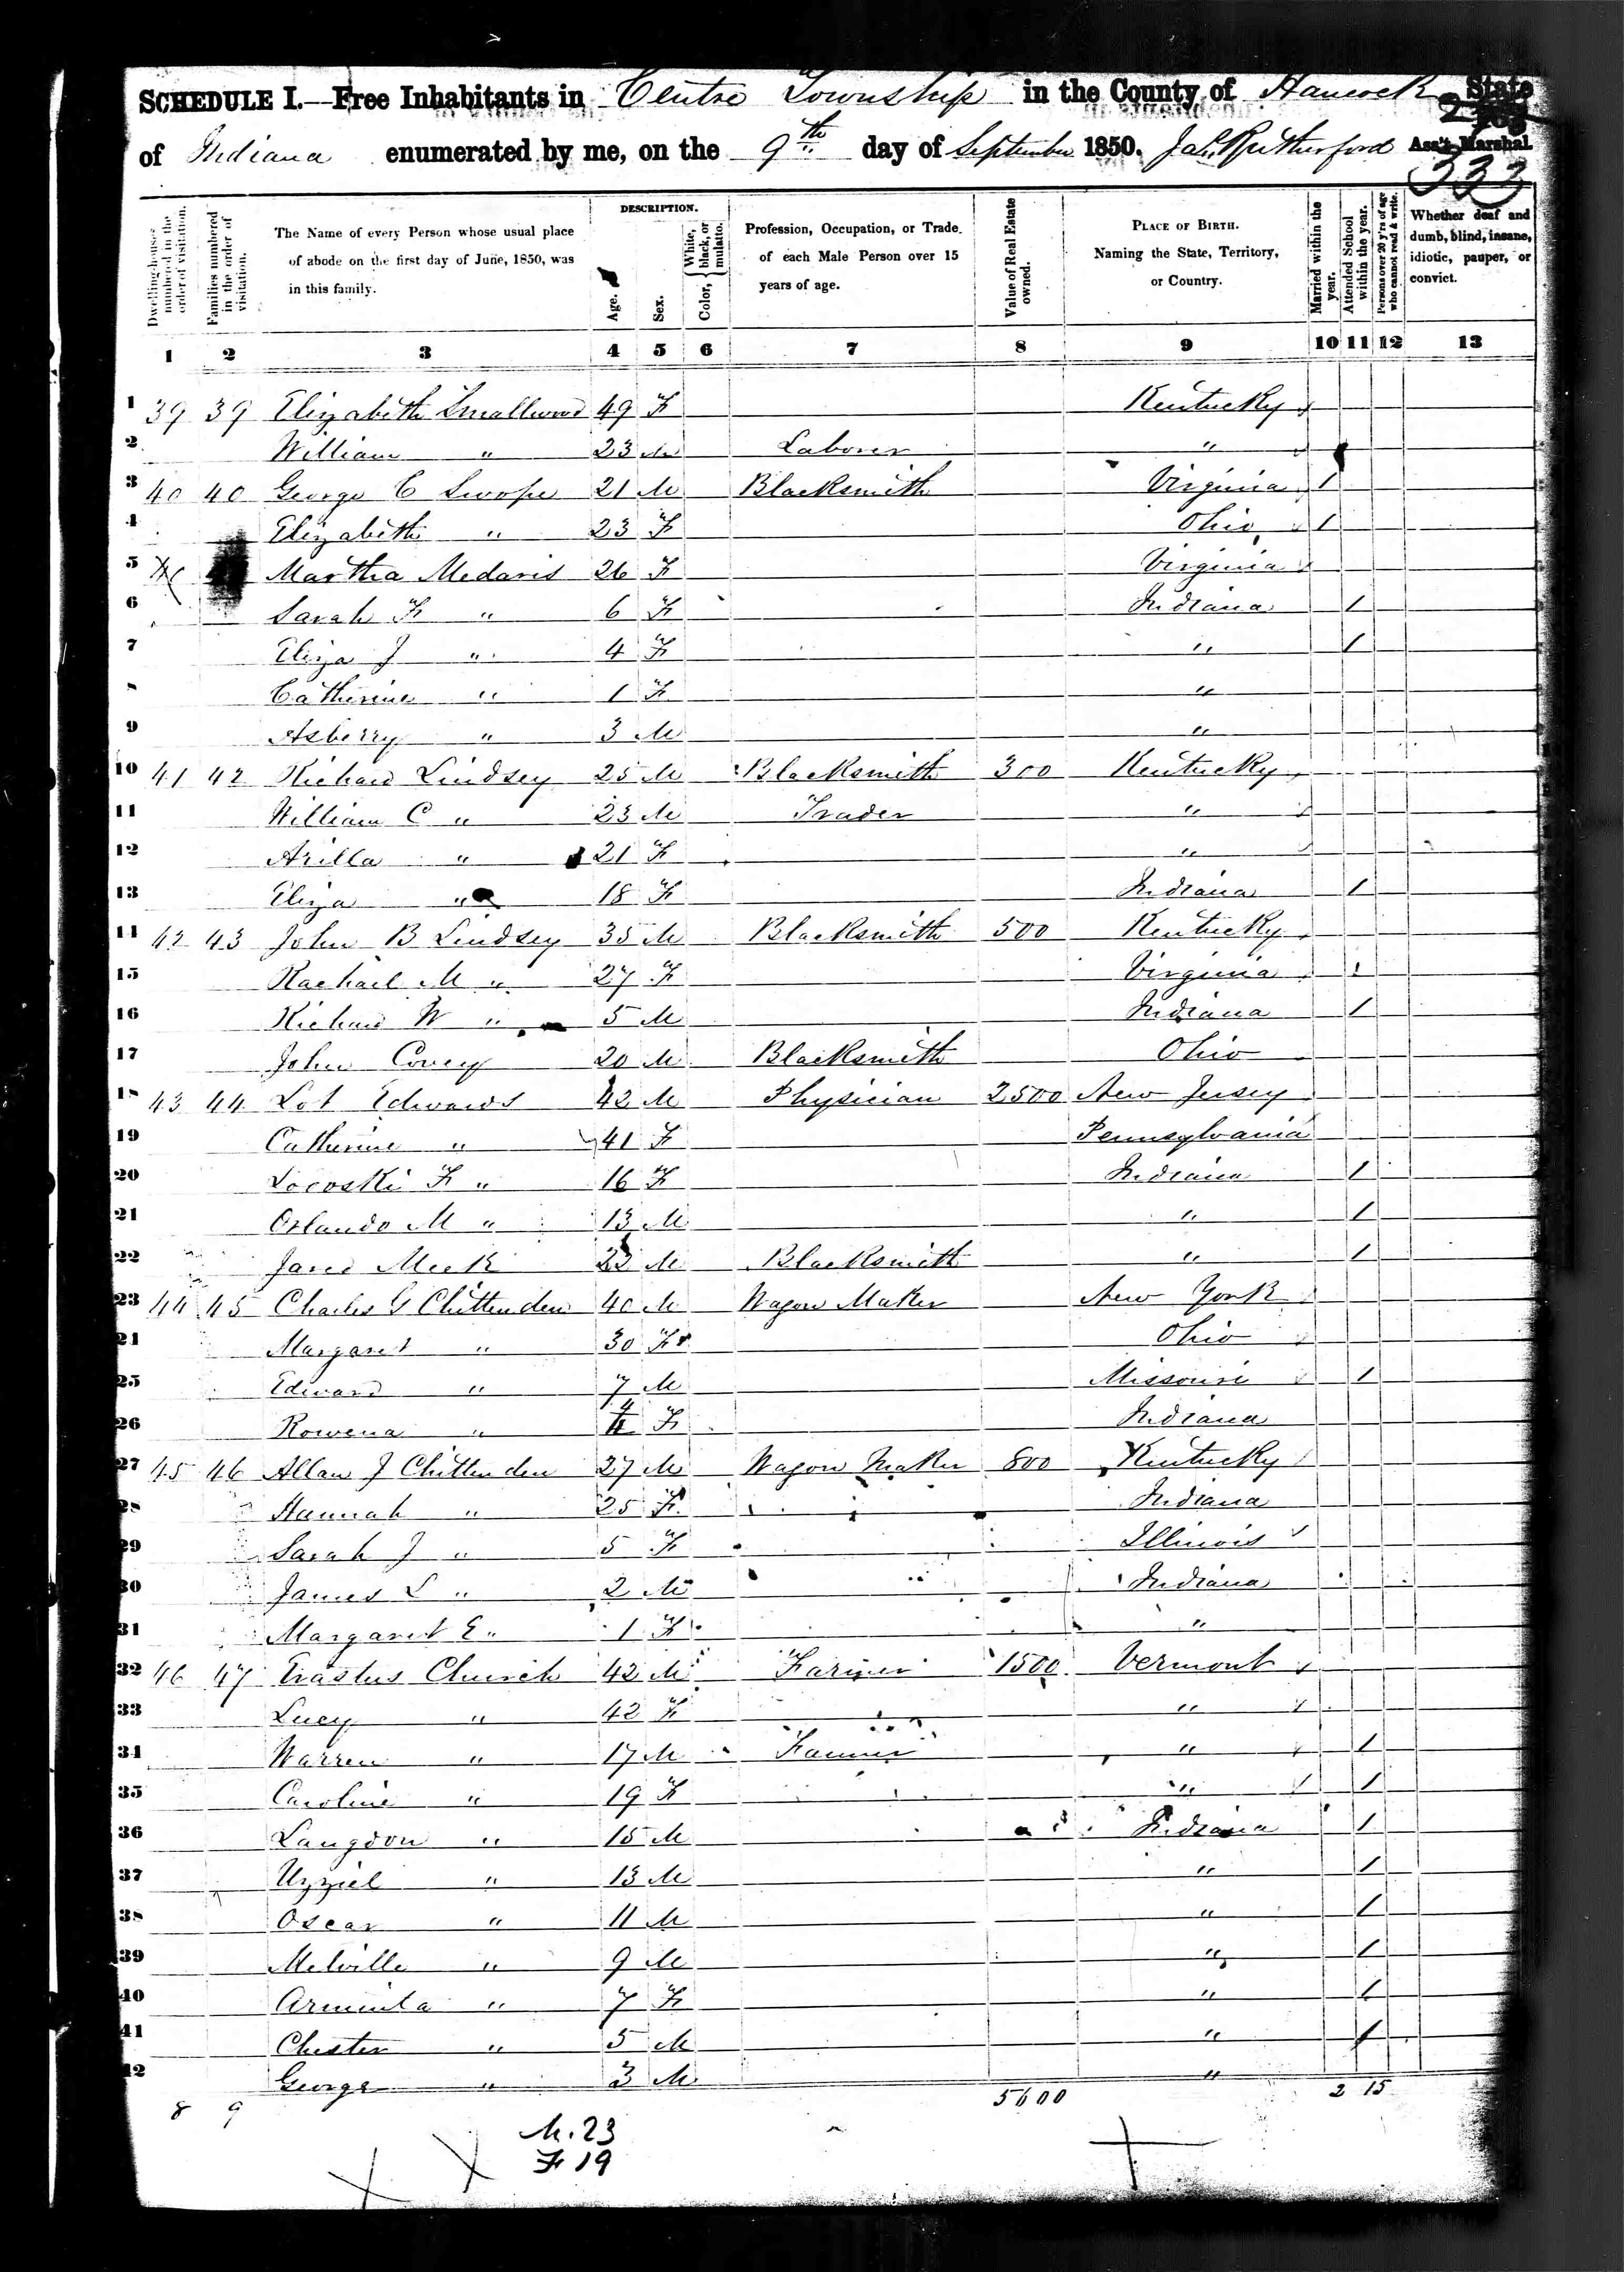 SCHEDULE I.—Free Inhabitants in Centre Township in the County of Hancock State
of Indiana enumerated by me, on the 9th day of September 1850. Jas. Rutherford Ass't Marshal.
333
Dwelling-houses numbered in the order of visitation.
Families numbered in the order of visitation.
The Name of every Person whose usual place of abode on the first day of June, 1850, was in this family.
DESCRIPTION.
Age.
Sex.
Color, { White, black, or mulatto.
Profession, Occupation, or Trade of each Male Person over 15 years of age.
Value of Real Estate owned.
PLACE OF BIRTH. Naming the State, Territory, or Country.
Married within the year.
Attended School within the year.
Persons over 20 y'rs of age who cannot read & write.
Whether deaf and dumb, blind, insane, idiotic, pauper, or convict.
1 2 3 4 5 6 7 8 9 10 11 12 13
1 39 39 Elizabeth Smallwood 49 F Kentucky
2 William " 23 M Laborer "
3 40 40 George C Swope 21 M Blacksmith Virginia 1
4 Elizabeth " 23 F Ohio 1
5 Martha Medaris 26 F Virginia
6 Sarah F " 6 F Indiana 1
7 Eliza J " 4 F " 1
8 Catherine " 1 F "
9 Asberry " 3 M "
10 41 42 Richard Lindsey 25 M Blacksmith 300 Kentucky
11 William C " 23 M Trader "
12 Arilla " 21 F "
13 Eliza " 18 F Indiana 1
14 42 43 John B Lindsey 35 M Blacksmith 500 Kentucky
15 Rachael M " 27 F Virginia 1
16 Richard W " 5 M Indiana 1
17 John Covey 20 M Blacksmith Ohio
18 43 44 Lot Edwards 42 M Physician 2500 New Jersey
19 Catherine " 41 F Pennsylvania
20 Locoski F " 16 F Indiana 1
21 Orlando M " 13 M " 1
22 Jared Meek 23 M Blacksmith " 1
23 44 45 Charles G Chittenden 40 M Wagon Maker New York
24 Margaret " 30 F Ohio
25 Edward " 7 M Missouri 1
26 Rowena " F Indiana
27 45 46 Allan J Chittenden 27 M Wagon Maker 800 Kentucky
28 Hannah " 25 F Indiana
29 Sarah J " 5 F Illinois
30 James L " 2 M Indiana
31 Margaret E " 1 F "
32 46 47 Erastus Church 42 M Farmer 1500 Vermont
33 Lucy " 42 F "
34 Warren " 17 M Farmer " 1
35 Caroline " 19 F " 1
36 Langdon " 15 M Indiana 1
37 Uzziel " 13 M " 1
38 Oscar " 11 M " 1
39 Melville " 9 M " 1
40 Arminta " 7 F " 1
41 Chester " 5 M " 1
42 George " 3 M "
8 9 5600 2 15
M. 23
F 19